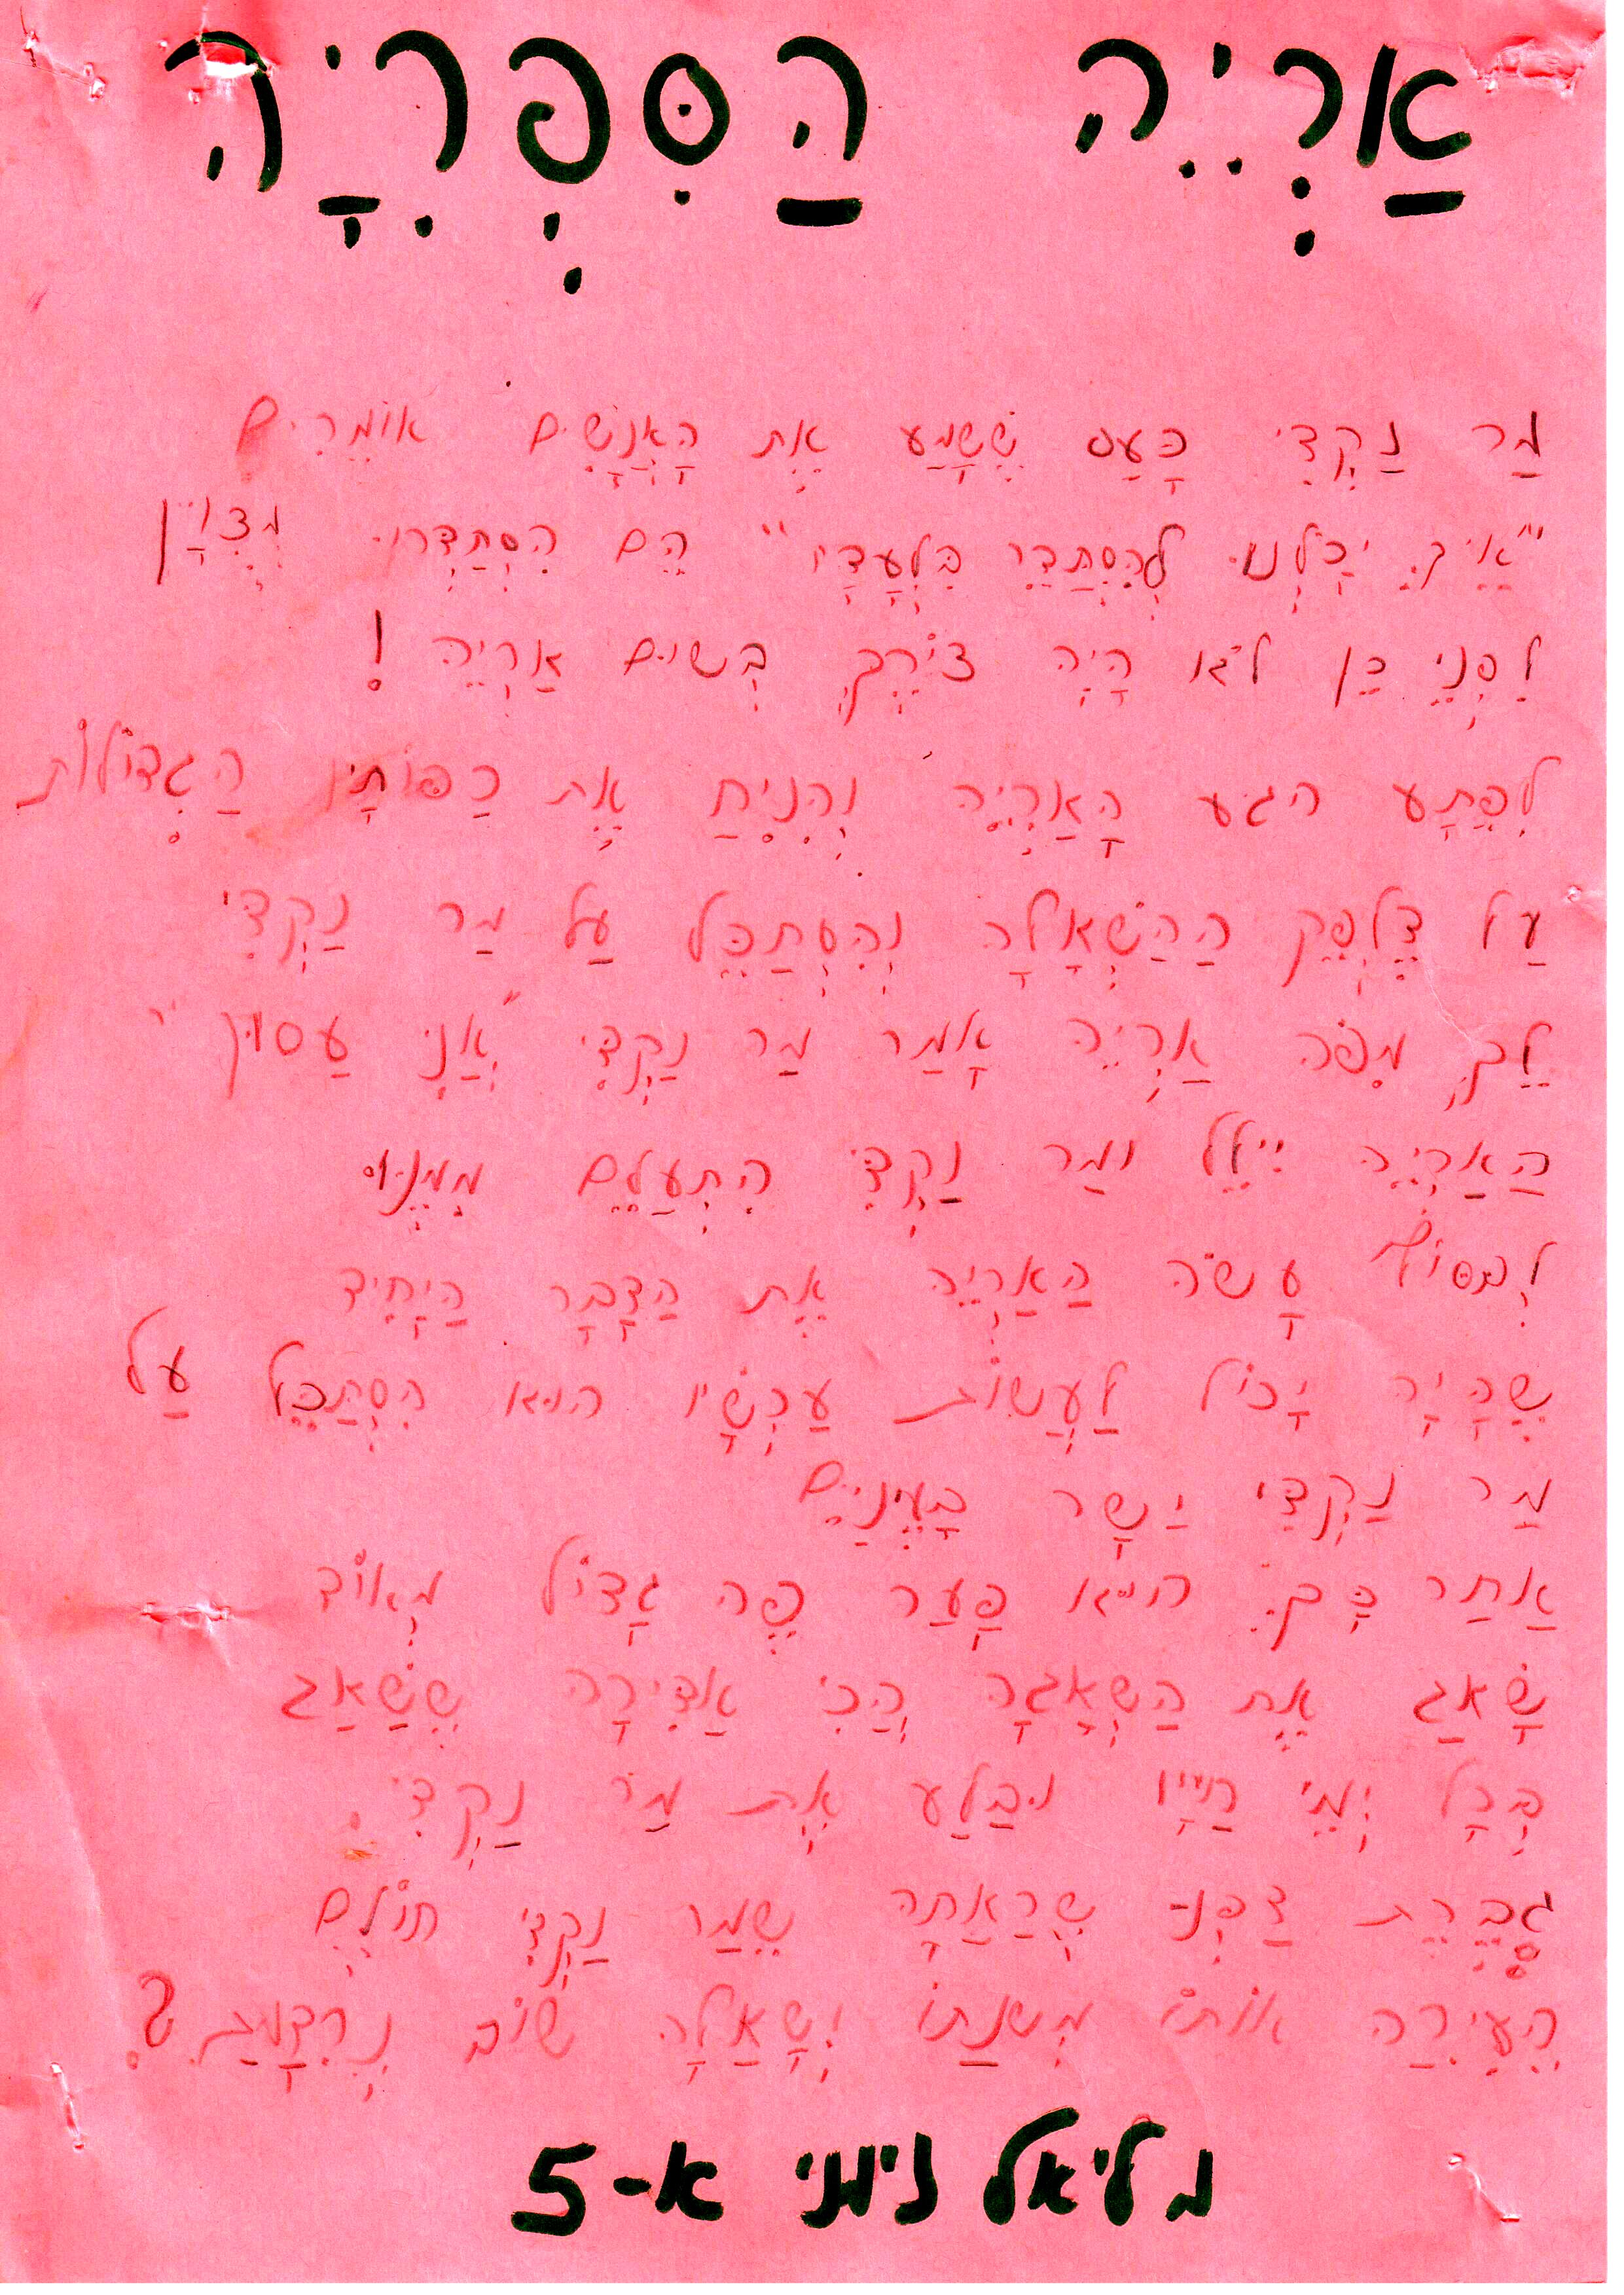 אַרְיֵה הַסִּפְרִיָּה
מַר נַקְדִי כָּעַס שֶׁשָּׁמַע אֶת הָאֲנָשִׁים אוֹמְרִים
"אֵיךְ יָכֹלְנוּ לְהִסְתַּדֵּר בִּלְעָדָיו" הֵם הִסְתַּדְּרוּ מְצֻוִּיָן
לִפְנֵי כֵן לֹא הָיָה צוֹרֶךְ בְּשׁוּם אַרְיֵה!
לְפֶתָע הגע הָאַרְיֵה וְהִנִיחַ אֶת כַּפּוֹתָיו הַגְּדוֹלוֹת
עַל דֶלְפֶּק הַהַשְׁאָלָה וְהִסְתַּכֵּל עַל מַר נַקְדִי
לֵךְ מִפֹּה אַרְיֵה אָמַר מַר נַקְדִי "אֲנִי עַסוּק"
הַאַרְיֵה יִילֵל וּמַר נַקְדִי הִתְעַלֵּם מִמֶּנּוּ
לְבסוֹף עָשֹה הַאַרְיֵה אֶת הַדָּבָר הַיָּחִיד
שֶׁהָיָה יָכוֹל לַעֲשׂוֹת עַכְשָׁיו הוּא הִסְתַּכֵּל עַל
מַר נַקְדִי יַשָׁר בָּעֵינַיִים
אַחַר כָּךְ הוּא פָּעַר פֶּה גָּדוֹל מְאוֹד
שָׁאַג אֶת הַשְׁאָגָה הֲכִי אַדִירָה שֶׁשַׁאַג
בְּכָל יְמֵי חַיָּיו וּבַלַע אֶת מַר נַקְדִי.
גְבֶרֶת צַפְנִי שֶׁרַאַתָה שֶׁמַר נַקְדִי חוֹלֵם
הֶעִירַה אוֹתוֹ מִשְׁנַתוֹ וְשָׁאַלָה שׁוּב נִרְדָמְתַ?
מליאל נימני א-5